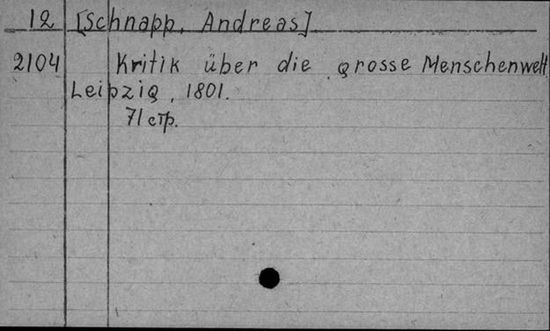 12 [Schnapp, Andreas]
2104 Kritik über die grosse Menschenwelt
Leipzig, 1801.
71 стр.